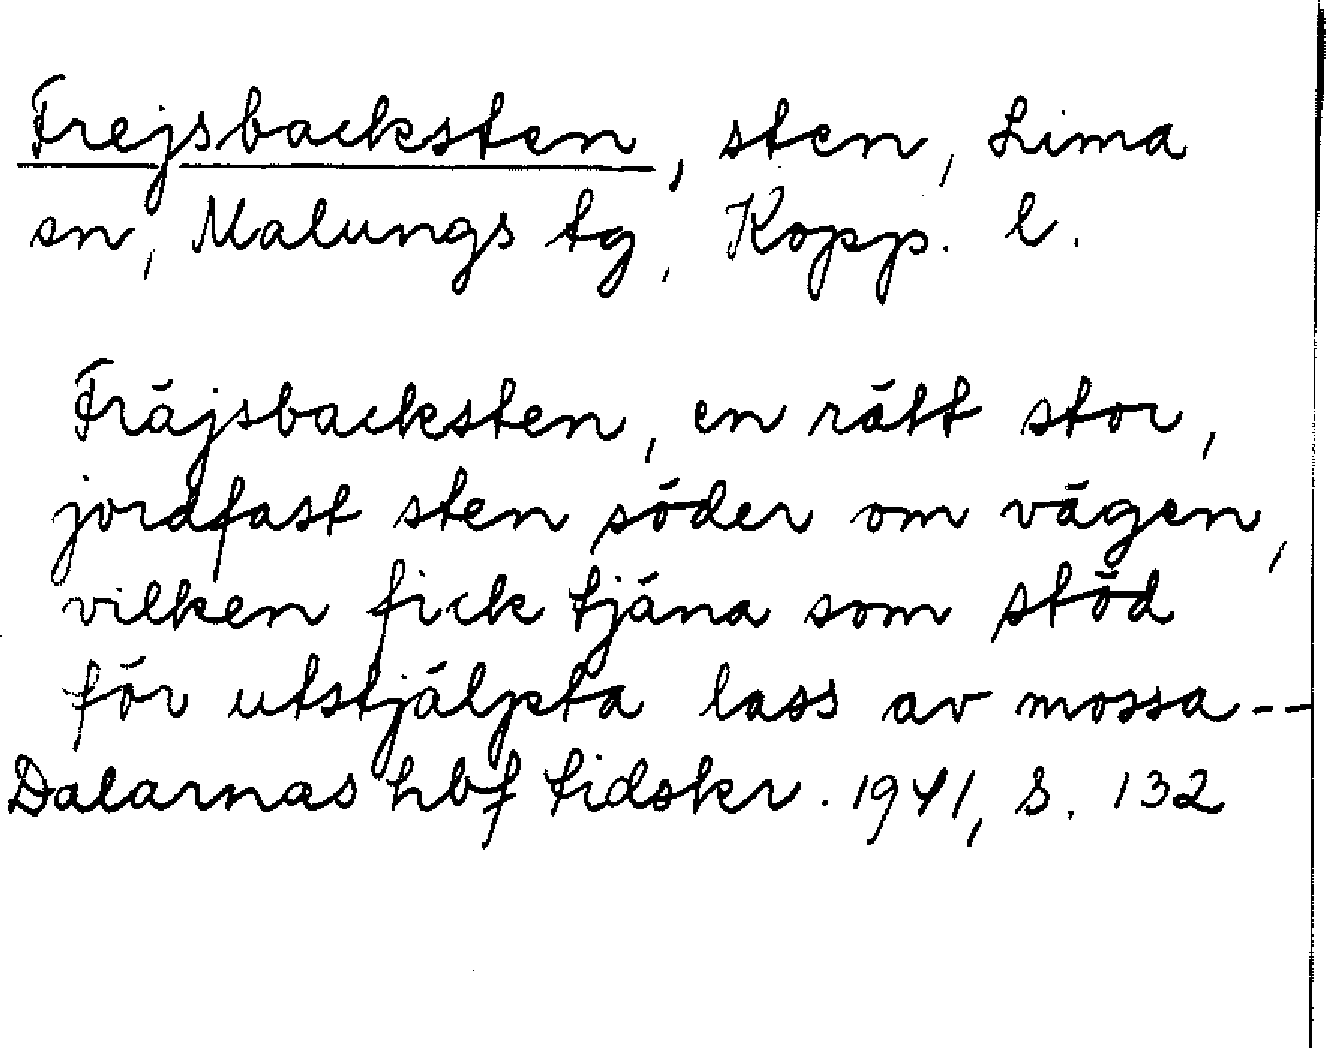 Frejsbacksten, sten, Lima
sn, Malungs tg, Kopp. l.
Fräjsbacksten, en rätt stor,
jordfast sten söder om vägen,
vilken fick tjäna som stöd
för utstjälpta lass av mossa--
Dalarnas hbf tidskr. 1941, S. 132